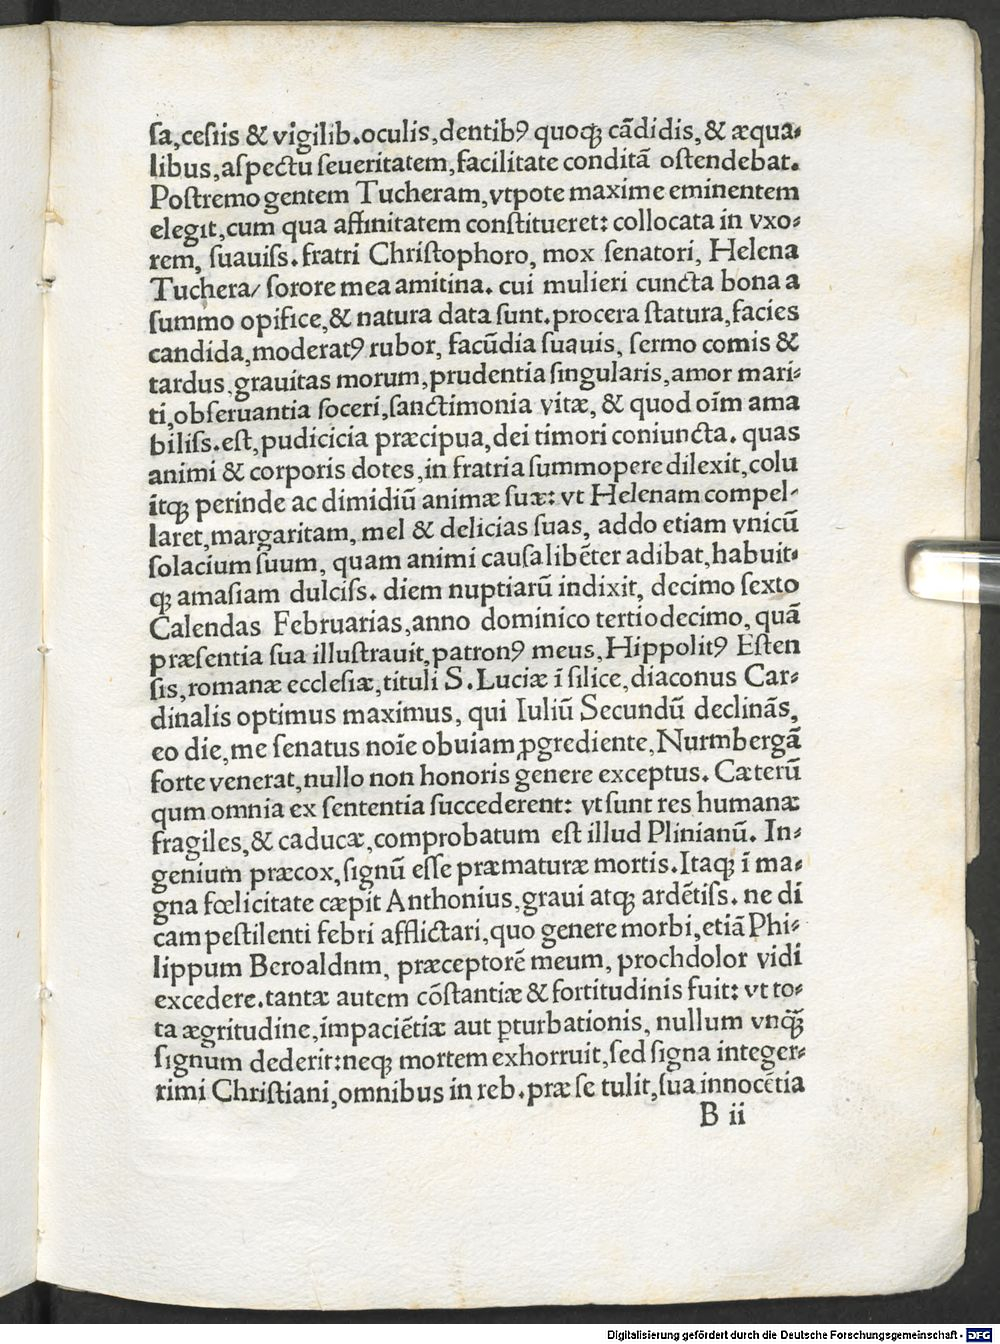 ſa,ceſiis & vigilib.oculis,dentibꝰ quoqꝫ cādidis,& æqua⸗
libus,aſpectu ſeueritatem,facilitate conditā oſtendebat.
Poſtremo gentem Tucheram,vtpote maxime eminentem
elegit,cum qua affinitatem conſtitueret: collocata in vxo⸗
rem, ſuauiſs.fratri Chriſtophoro, mox ſenatori, Helena
Tuchera/ ſorore mea amitina. cui mulieri cuncta bona a
ſummo opifice,& natura data ſunt.procera ſtatura,facies
candida,moderatꝰ rubor, facūdia ſuauis, ſermo comis &
tardus,grauitas morum,prudentia ſingularis,amor mari⸗
ti,obſeruantia ſoceri,ſanctimonia vitæ, & quod oīm ama
biliſs.eſt,pudicicia præcipua,dei timori coniuncta. quas
animi & corporis dotes,in fratria ſummopere dilexit,colu
itqꝫ perinde ac dimidiū animæ ſuæ: vt Helenam compel⸗
laret,margaritam, mel & delicias ſuas, addo etiam vnicū
ſolacium ſuum, quam animi cauſa libēter adibat,habuit⸗
qꝫ amaſiam dulciſs. diem nuptiarū indixit, decimo ſexto
Calendas Februarias,anno dominico tertiodecimo, quā
præſentia ſua illuſtrauit,patronꝰ meus, Hippolitꝰ Eſten
ſis,romanæ eccleſiæ,tituli S.Luciæ ī ſilice,diaconus Car⸗
dinalis optimus maximus, qui Iuliū Secundū declinās,
eo die,me ſenatus noīe obuiam ꝓgrediente,Nurmbergā
forte venerat,nullo non honoris genere exceptus. Cæterū
qum omnia ex ſententia ſuccederent: vt ſunt res humanæ
fragiles,& caducæ,comprobatum eſt illud Plinianū. In⸗
genium præcox,ſignū eſſe præmaturæ mortis.Itaqꝫ ī ma⸗
gna fœlicitate cæpit Anthonius,graui atqꝫ ardētiſs. ne di
cam peſtilenti febri afflictari,quo genere morbi,etiā Phi⸗
lippum Beroaldnm, præceptorē meum, prochdolor vidi
excedere.tantæ autem cōſtantiæ & fortitudinis fuit: vt to⸗
ta ægritudine,impaciētiæ aut ꝑturbationis, nullum vnqꝫ̄
ſignum dederit:neqꝫ mortem exhorruit,ſed ſigna integer⸗
rimi Chriſtiani,omnibus in reb.præ ſe tulit,ſua innocētia
B ii
Digitalisierung gefördert durch die Deutsche Forschungsgemeinschaft - DFG